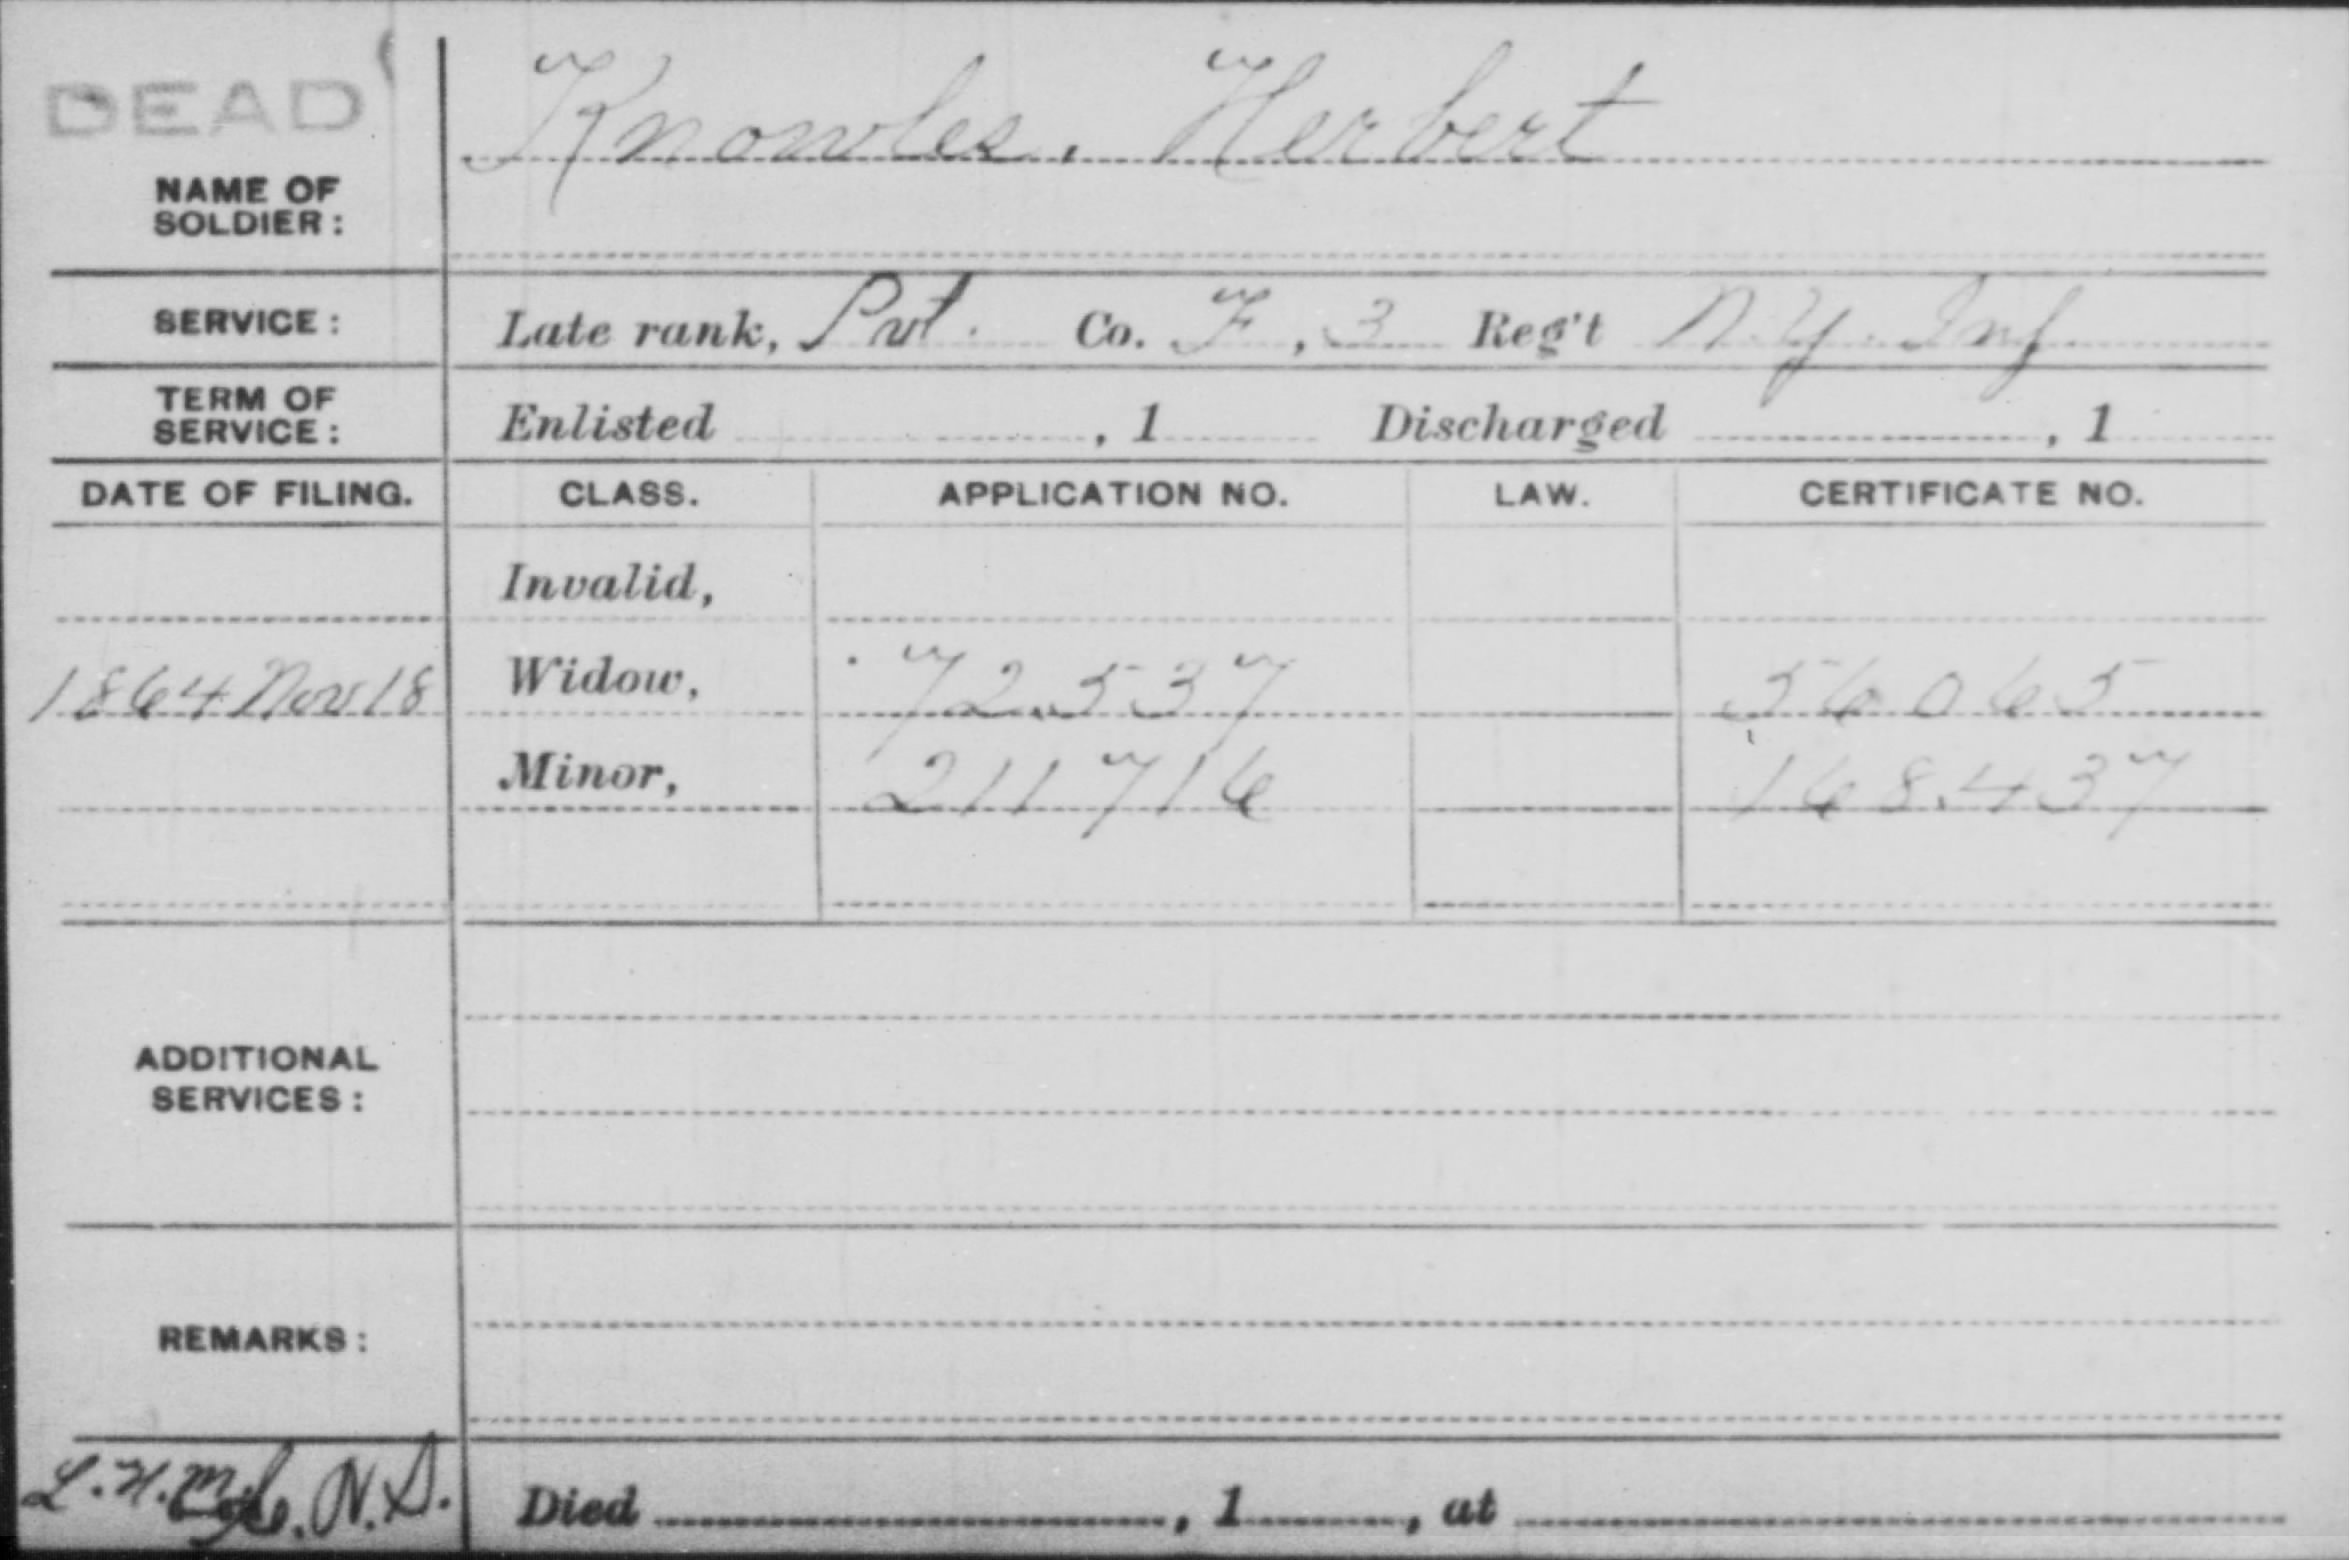 DEAD
Knowles, Herbert
NAME OF
SOLDIER:
SERVICE: Late rank, Pvt. Co. F, 3 Reg't N.Y. Inf
TERM OF
SERVICE: Enlisted , 1 Discharged , 1
DATE OF FILING. CLASS. APPLICATION NO. LAW. CERTIFICATE NO.
Invalid,
1864 Nov 18 Widow, 72.537 56065
Minor, 211716 168.437
ADDITIONAL
SERVICES:
REMARKS:
Died , 1 , at